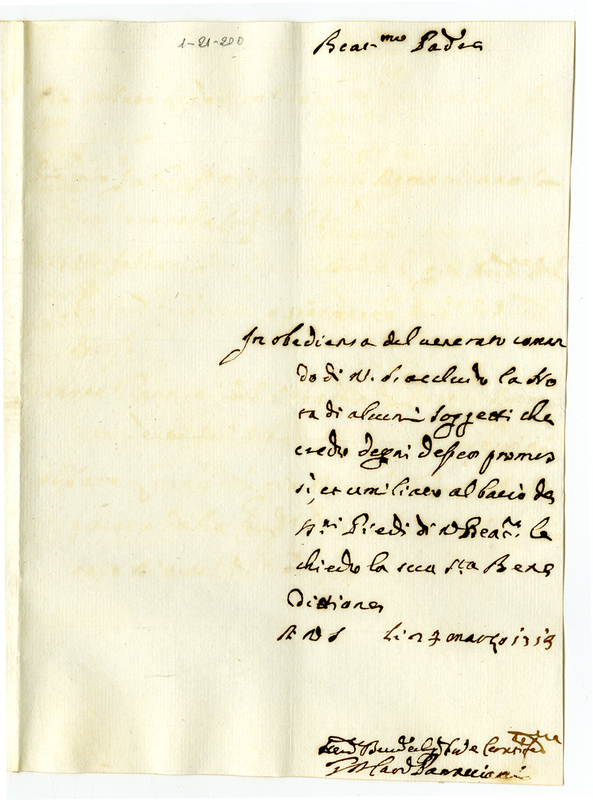 1-21-200
Beat.mo Padre
In obedienza del venerato coman
do di V. S. accludo la No
ta di alcuni soggetti che
credo degni d'esser promos
si, et umiliato al bacio de
SS.mi Piedi di V. Beat.ne le
chiedo la sua S.ta Bene
dittione
Di V. S. li 27 marzo 1713
G. B. Card. Panneciani